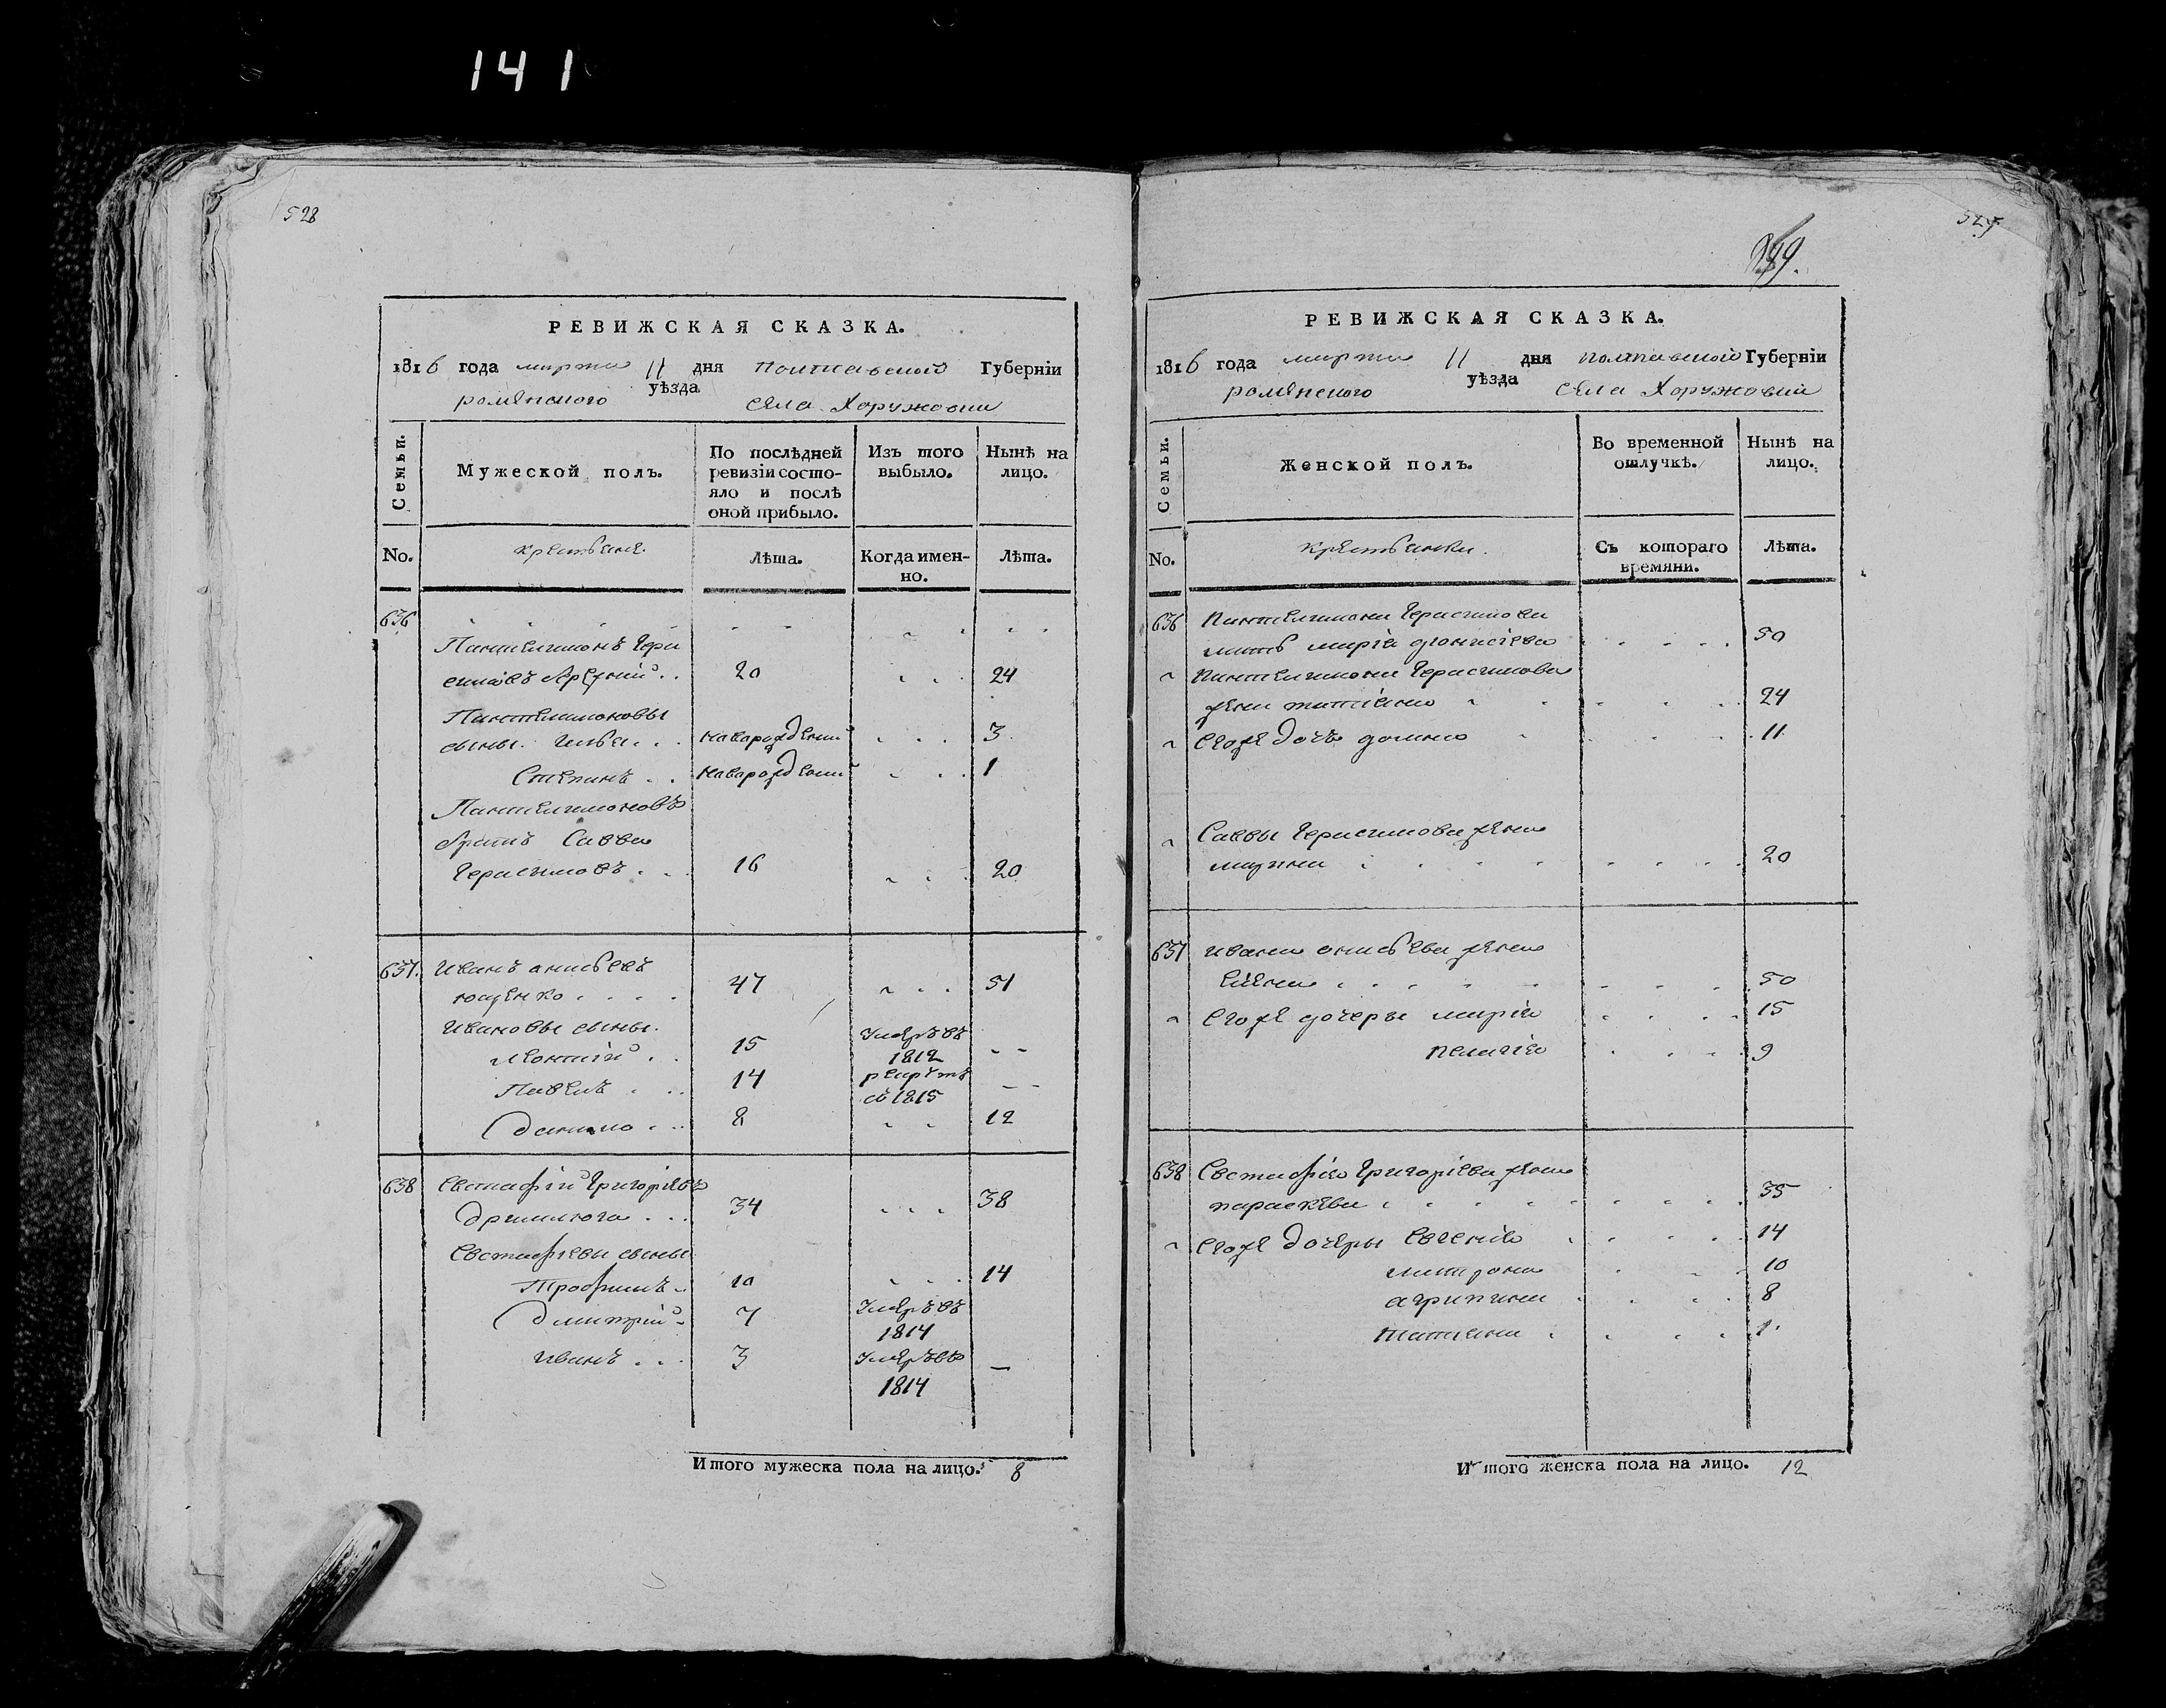 141
528
РЕВИЖСКАЯ СКАЗКА.
1816 года марта 11 дня Полтавской Губерніи
роменского уѣзда села Хоружовки
Семьи.
Мужеской полъ.
По послѣдней
ревизіи состо-
яло и послѣ
оной прибыло.
Изъ того
выбыло.
Нынѣ на
лицо.
No.
крестьяне.
Лѣта.
Когда имен-
но.
Лѣта.
636
Пантелимонъ Гера
симовъ 20 24
Пантелимоновы
сыны. Илья новарожденый 3
Степанъ новарожденый 1
Пантелимоновъ
братъ Савва
Герасимовъ 16 20
637. Иванъ анисьевъ
ющенко 47 51
Ивановы сыны.
Леонтій 15 Умеръ въ
1812
Павелъ 14 рекрутъ
въ 1815
Данило 8 12
638 Евстафій Григорьевъ
34 38
Евстафіевы сыны
Трофимъ 10 14
Дмитрій 7 Умеръ въ
1814
иванъ 3 Умеръ въ
1814
Итого мужеска пола на лицо. 8
529
РЕВИЖСКАЯ СКАЗКА.
1816 года марта 11 дня полтавской Губерніи
роменского уѣзда села Хоружовки
Семьи.
Женской полъ.
Во временной
отлучкѣ.
Нынѣ на
лицо.
No.
крестьянки.
Съ котораго
времяни.
Лѣта.
636 Пантелимона Герасимова
мать марія дионисіева 50
Пантелимона Герасимова
жена татіяна 24
Егоже дочь домна 11
Саввы Герасимова жена
20
637 ивана анисьева жена
елена 50
Егоже дочери марія 15
пелагія 9
638 Евстафія Григоріева жена
параскева 35
Егоже дочери Евгенія 14
матрона 10
агрипина 8
татіяна 1
Итого женска пола на лицо. 12